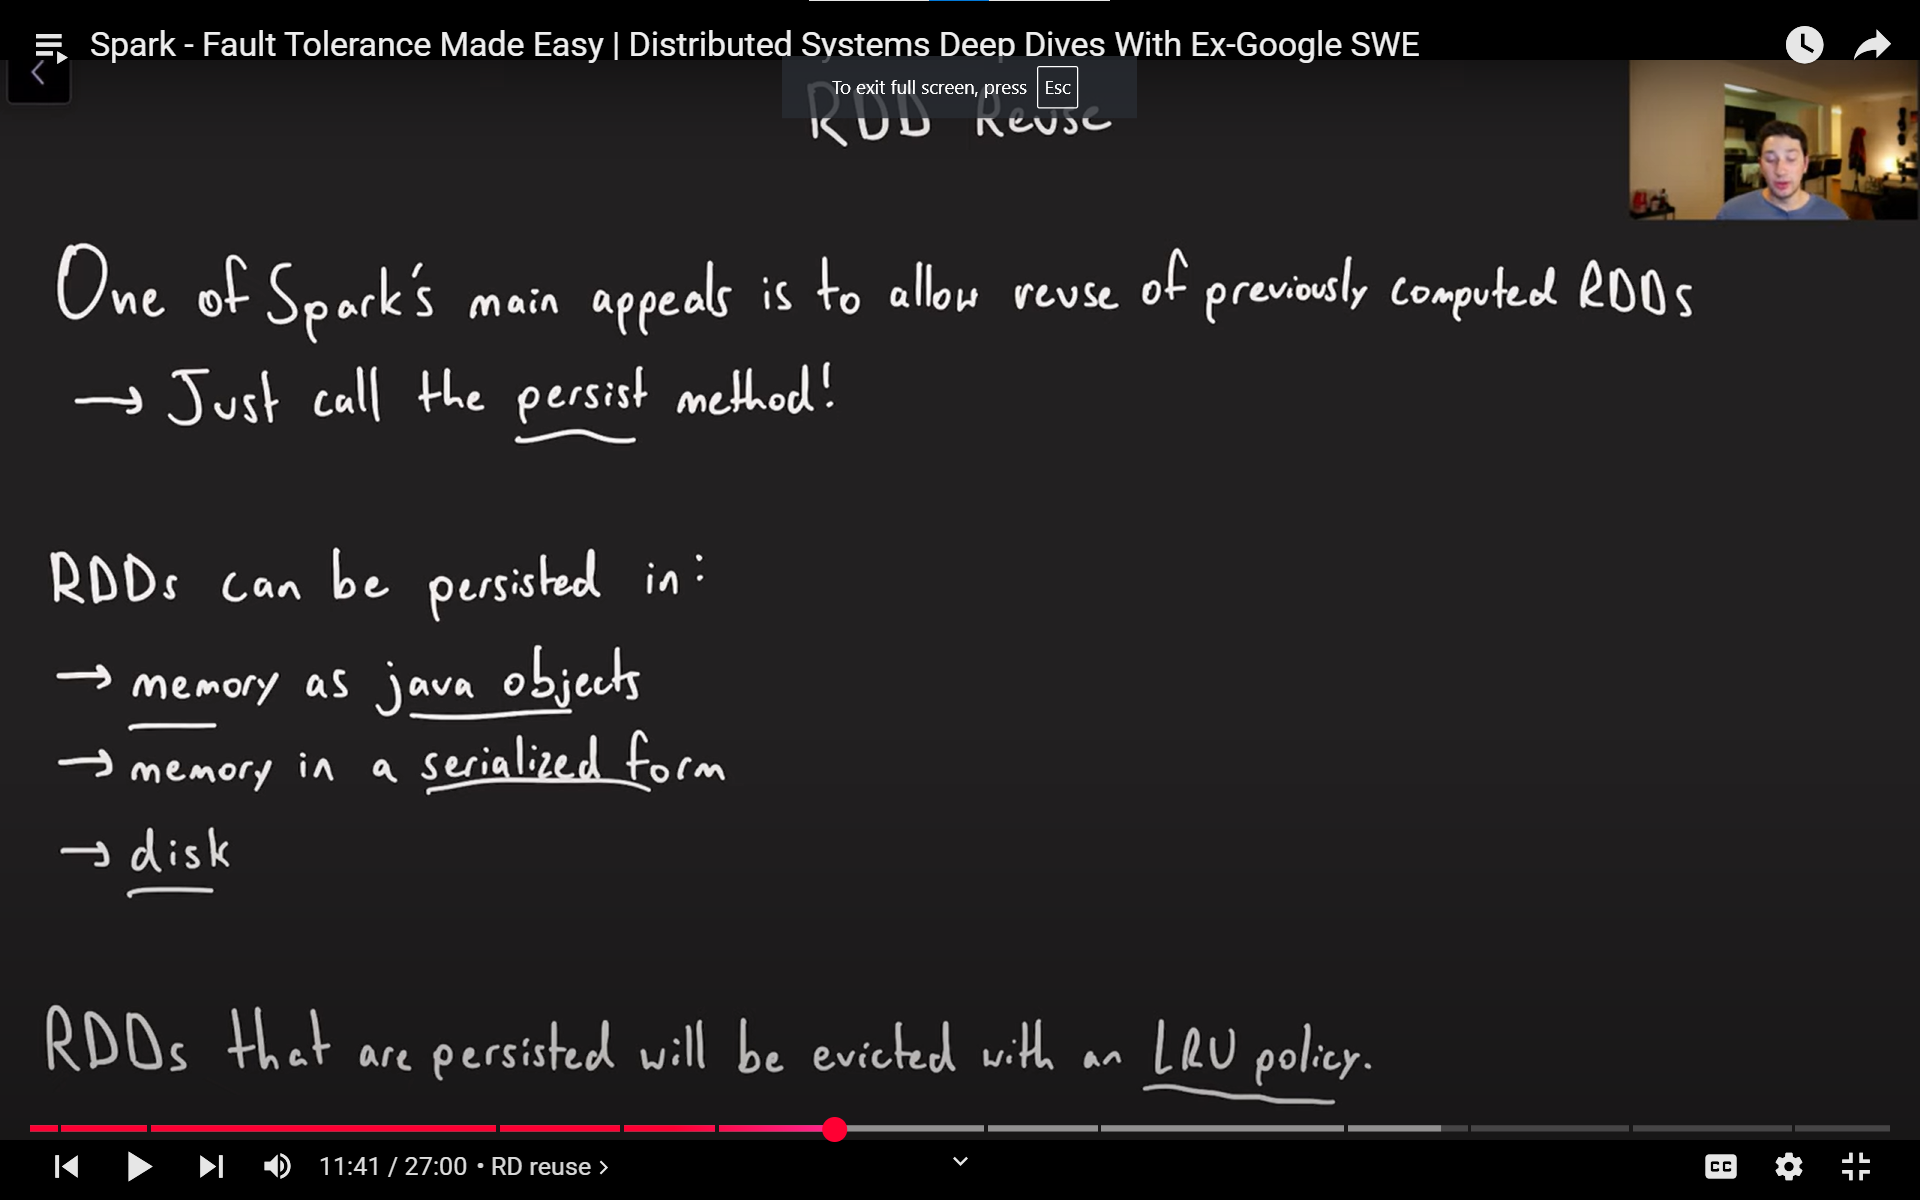 Spark - Fault Tolerance Made Easy | Distributed Systems Deep Dives With Ex-Google SWE
To exit full screen, press Esc
RDD Reuse
One of Spark's main appeals is to allow reuse of previously computed RDDs
→ Just call the persist method!
RDDs can be persisted in:
→ memory as java objects
→ memory in a serialized form
→ disk
RDDs that are persisted will be evicted with an LRU policy.
11:41 / 27:00 • RD reuse >
CC